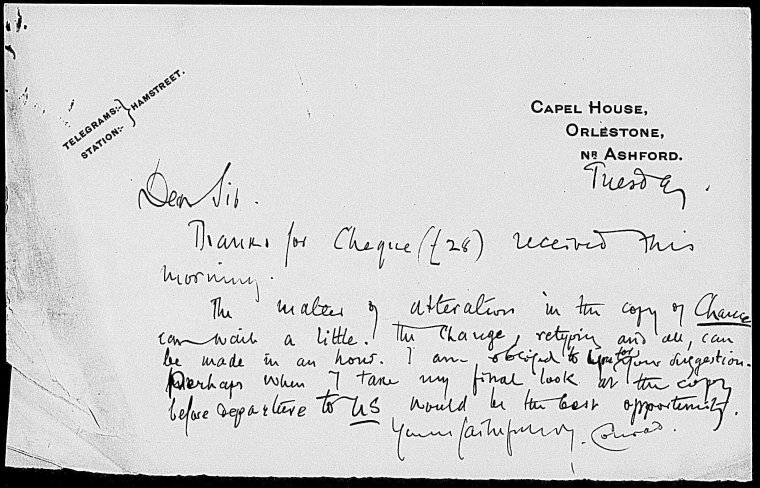 TELEGRAMS:-
STATION:-
} HAMSTREET.
CAPEL HOUSE,
ORLESTONE,
NR ASHFORD.
Tuesday.
Dear Sir.
Thanks for Cheque (£28) received this
morning.
The matter of alteration in the copy of Chance
can wait a little. The change, retyping and all, can
be made in an hour. I am obliged to you for your suggestion.
Perhaps when I take my final look at the copy
before departure to US would be the best opportunity.
Yours faithfully. Conrad.